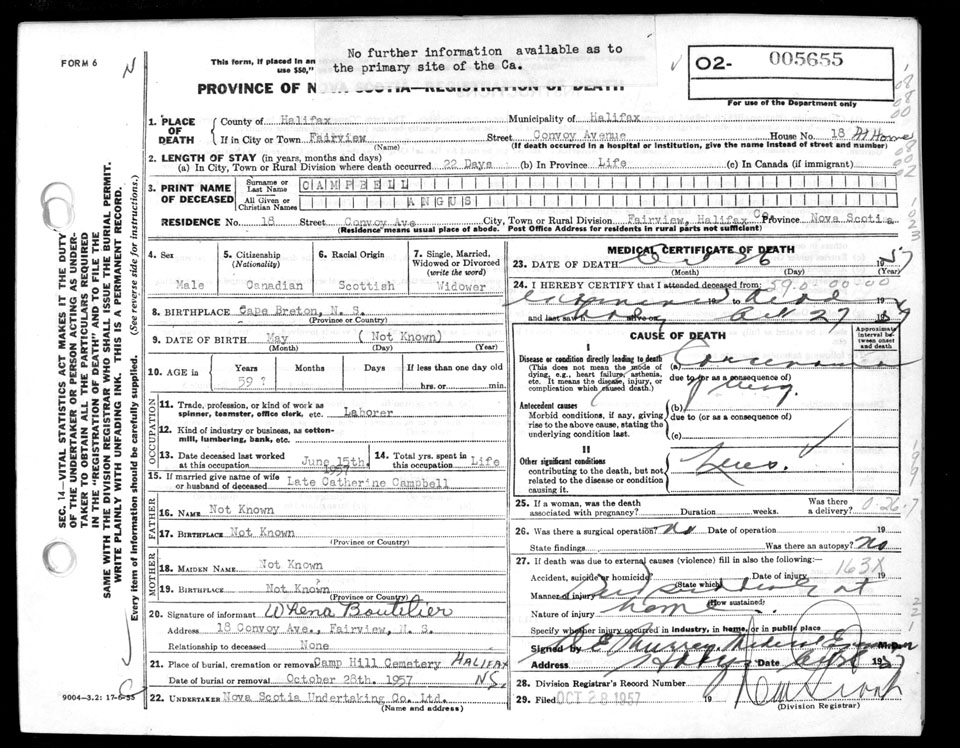 FORM 6
N
This form, if placed in an
use $50,"
No further information available as to
the primary site of the Ca.
PROVINCE OF NOVA SCOTIA—REGISTRATION OF DEATH
02- 005655
For use of the Department only
1. PLACE OF DEATH
County of Halifax Municipality of Halifax
If in City or Town Fairview Street Convoy Avenue House No. 18 At Home
(Name) (If death occurred in a hospital or institution, give the name instead of street and number)
2. LENGTH OF STAY (in years, months and days)
(a) In City, Town or Rural Division where death occurred 22 Days (b) In Province Life (c) In Canada (if immigrant)
3. PRINT NAME OF DECEASED
Surname or Last Name CAMPBELL
All Given or Christian Names ANGUS
RESIDENCE No. 18 Street Convoy Ave City, Town or Rural Division Fairview, Halifax Co. Province Nova Scotia
(Residence means usual place of abode. Post Office Address for residents in rural parts not sufficient)
4. Sex
Male
5. Citizenship
(Nationality)
Canadian
6. Racial Origin
Scottish
7. Single, Married,
Widowed or Divorced
(write the word)
Widower
8. BIRTHPLACE Cape Breton, N. S.
(Province or Country)
9. DATE OF BIRTH May (Not Known)
(Month) (Day) (Year)
10. AGE in
Years Months Days If less than one day old
59 ? hrs. or min.
OCCUPATION
11. Trade, profession, or kind of work as
spinner, teamster, office clerk, etc. Laborer
12. Kind of industry or business, as cotton-
mill, lumbering, bank, etc.
13. Date deceased last worked
at this occupation June 15th. 1957
14. Total yrs. spent in
this occupation Life
15. If married give name of wife
or husband of deceased Late Catherine Campbell
FATHER
16. NAME Not Known
17. BIRTHPLACE Not Known
(Province or Country)
MOTHER
18. MAIDEN NAME Not Known
19. BIRTHPLACE Not Known
(Province or Country)
20. Signature of informant Boutilier
Address 18 Convoy Ave., Fairview, N. S.
Relationship to deceased None
21. Place of burial, cremation or removal Camp Hill Cemetery HALIFAX
Date of burial or removal October 28th. 1957 N.S.
22. UNDERTAKER Nova Scotia Undertaking Co. Ltd.
(Name and Address)
MEDICAL CERTIFICATE OF DEATH
23. DATE OF DEATH Oct 26 195
(Month) (Day) (Year)
24. I HEREBY CERTIFY that I attended deceased from: 59.0-00-00
19 to 19
and last saw h alive on Oct 27 1957
CAUSE OF DEATH
Approximate
interval between
onset
and death
I
Disease or condition directly leading to death
(This does not mean the mode of
dying, e.g., heart failure, asthenia,
etc. It means the disease, injury, or
complication which caused death.)
(a) Carcinoma
due to (or as a consequence of)
Antecedent causes
Morbid conditions, if any, giving
rise to the above cause, stating the
underlying condition last.
(b)
due to (or as a consequence of)
(c)
II
Other significant conditions
contributing to the death, but not
related to the disease or condition
causing it.
25. If a woman, was the death
associated with pregnancy? Duration weeks. Was there
a delivery?
26. Was there a surgical operation? No Date of operation 19
State findings Was there an autopsy? No
27. If death was due to external causes (violence) fill in also the following:
Accident, suicide or homicide Date of injury 163X 19
(State which)
Manner of injury
(How sustained)
Nature of injury home
Specify whether injury occurred in industry, in home, or in public place
Signed by M.D.
Address Date 19
28. Division Registrar's Record Number
29. Filed OCT 28 1957 19
(Division Registrar)
SEC. 14—VITAL STATISTICS ACT MAKES IT THE DUTY
OF THE UNDERTAKER OR PERSON ACTING AS UNDER-
TAKER TO OBTAIN ALL THE PARTICULARS REQUIRED
IN THE "REGISTRATION OF DEATH" AND TO FILE THE
SAME WITH THE DIVISION REGISTRAR WHO SHALL ISSUE THE BURIAL PERMIT.
WRITE PLAINLY WITH UNFADING INK. THIS IS A PERMANENT RECORD.
Every item of information should be carefully supplied. (See reverse side for instructions.)